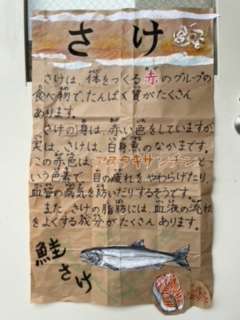 さけ
さけは、体をつくる赤のグループの
食べ物で、たんぱく質がたくさん
あります。
さけの身は、赤い色をしていますが
実は、さけは、白身魚のなかまです。
この赤色は、アスタキサンチンと
いう色素で、目の疲れをやわらげたり、
血管の病気を防いだりするそうです。
また、さけの脂肪には、血液の流れ
をよくする成分がたくさんあります。
鮭
さけ